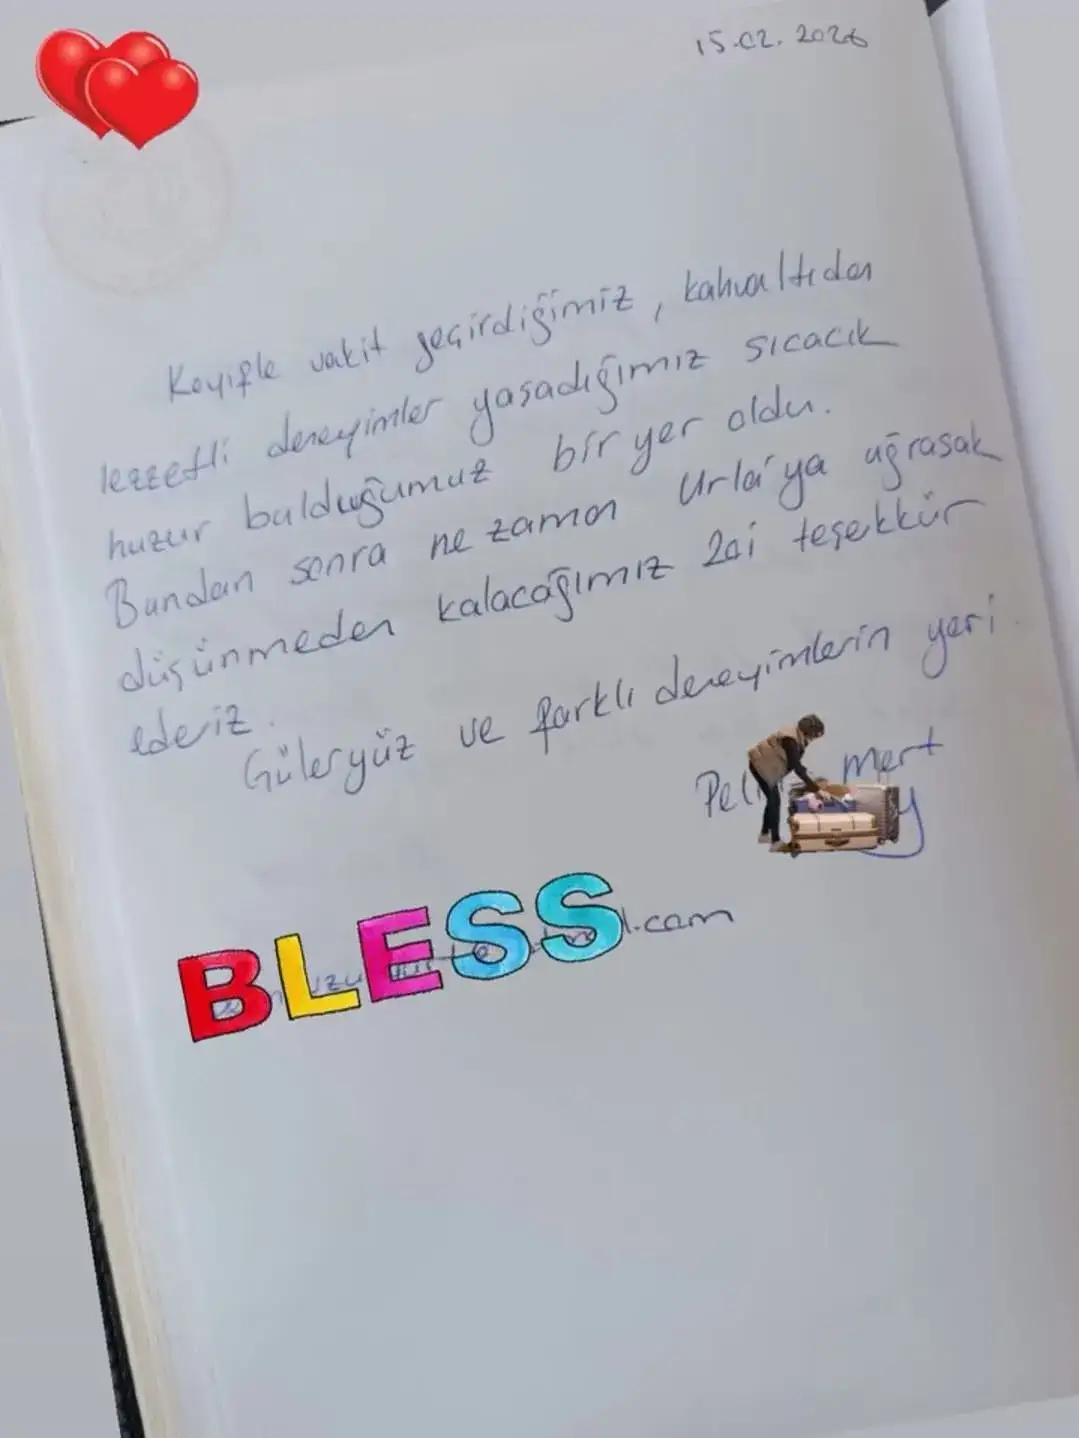 15.02.2026
Keyifle vakit geçirdiğimiz, kahvaltıdan
lezzetli deneyimler yaşadığımız sıcacık
huzur bulduğumuz bir yer oldu.
Bundan sonra ne zaman Urla'ya uğrasak
düşünmeden kalacağımız teşekkür
ederiz.
Güleryüz ve farklı deneyimlerin yeri.
mert
BLESS